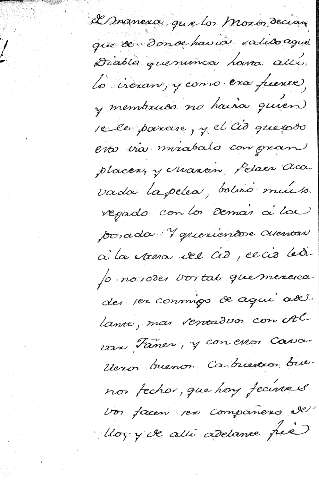 De manera que los Moros decian,
que de donde havia salido aquel
Diablo que nunca hasta alli
lo vieran, y como era fuerte,
y membrudo no havia quien
se le parase, y el Cid que todo
esto via mirabalo con gran
placer, y Martin Pelaez Aca-
vada la pelea, bolvió mui so-
segado con los demas á la
posada. Y queriendose asentar
á la mesa del Cid, el Cid le di-
jo no sodes vos tal que merezca-
des ser conmigo de aqui ade-
lante, mas sentadvos con Al-
var Fañez, y con estos Cava-
lleros buenos Ca buestros bue-
nos fechos, que hoy fecistes
vos facen ser compañero de-
llos y de alli adelante fué